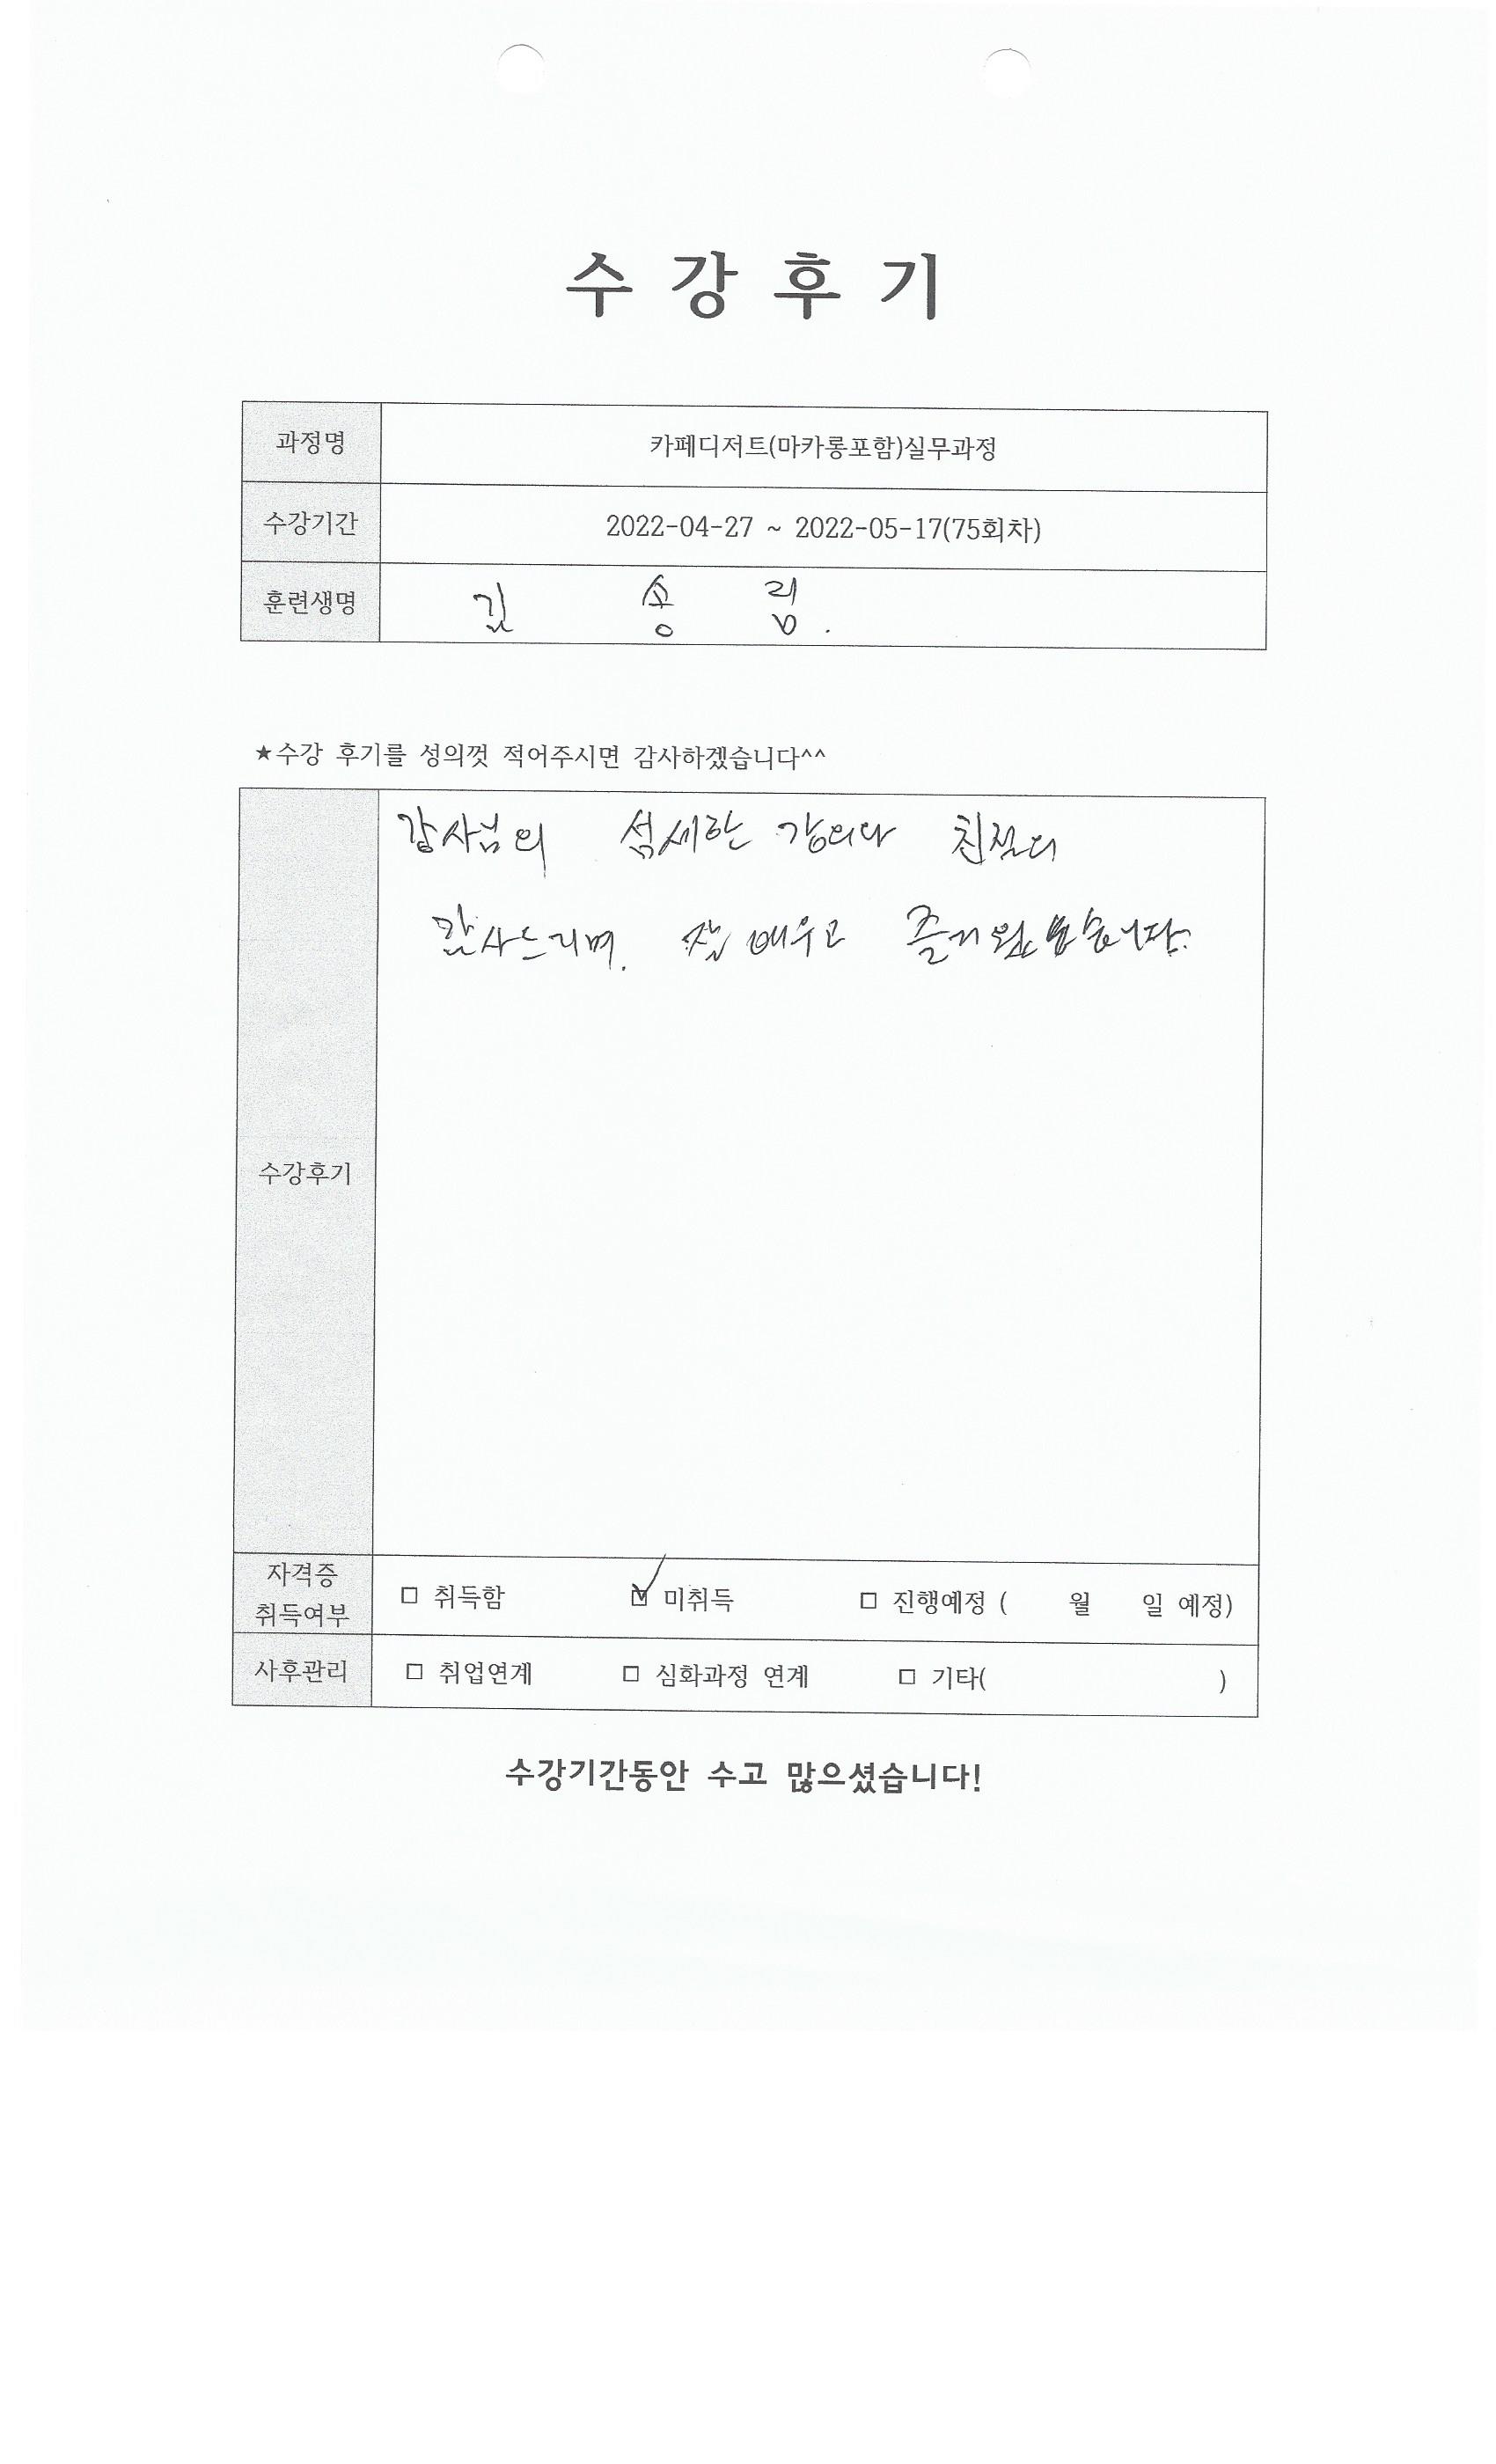 수 강 후 기
과정명 카페디저트(마카롱포함)실무과정
수강기간 2022-04-27 ~ 2022-05-17(75회차)
훈련생명 김 송 림.
★수강 후기를 성의껏 적어주시면 감사하겠습니다^^
수강후기
강사님의 섬세한 강의와
감사드리며. 잘 배우고
자격증
취득여부 □ 취득함 ☑ 미취득 □ 진행예정 ( 월 일 예정)
사후관리 □ 취업연계 □ 심화과정 연계 □ 기타( )
수강기간동안 수고 많으셨습니다!